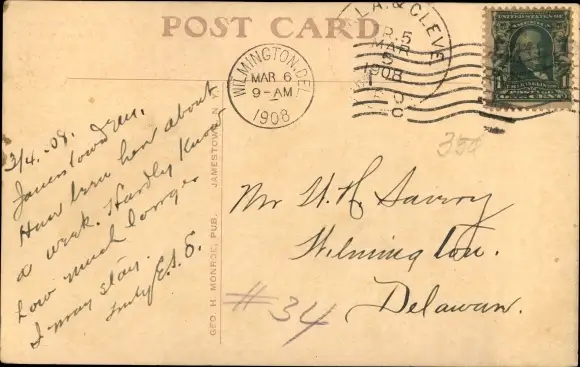 POST CARD
LA. & CLEVE
R.5
MAR
5
1908
WILMINGTON, DEL.
MAR. 6
9-AM
1908
3/4-08.
Jamestown
Have been here about
a week. Hardly know
how much longer
I may stay.
Truly E.S.S.
GEO. H. MONROE, PUB. JAMESTOWN, N.Y.
Mr W. H. Savory
Wilmington.
Delaware.
#34
35¢